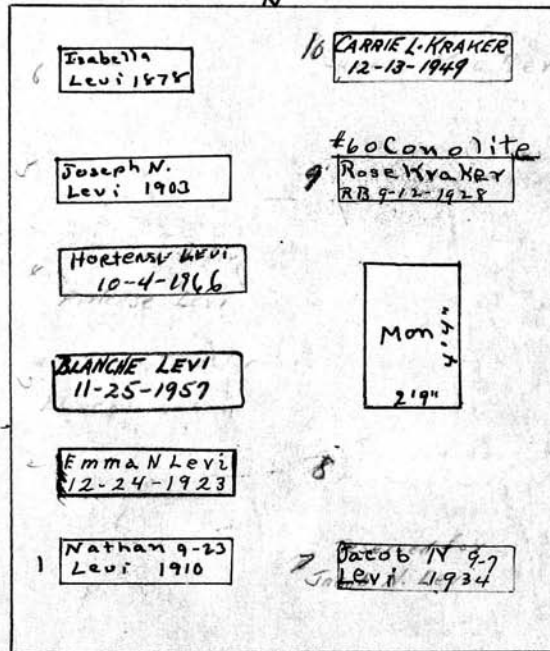 N
6 Isabella
Levi 1878
5 Joseph N.
Levi 1903
4 Hortense Levi
10-4-1966
BLANCHE LEVI
11-25-1957
Emma N Levi
12-24-1923
1 Nathan 9-23
Levi 1910
10 CARRIE L. KRAKER
12-13-1949
#60 Conolite
9 Rose Kraker
RB 9-12-1928
Mon 4'4"
2'9"
8
7 Jacob N 9-7
Levi 1934